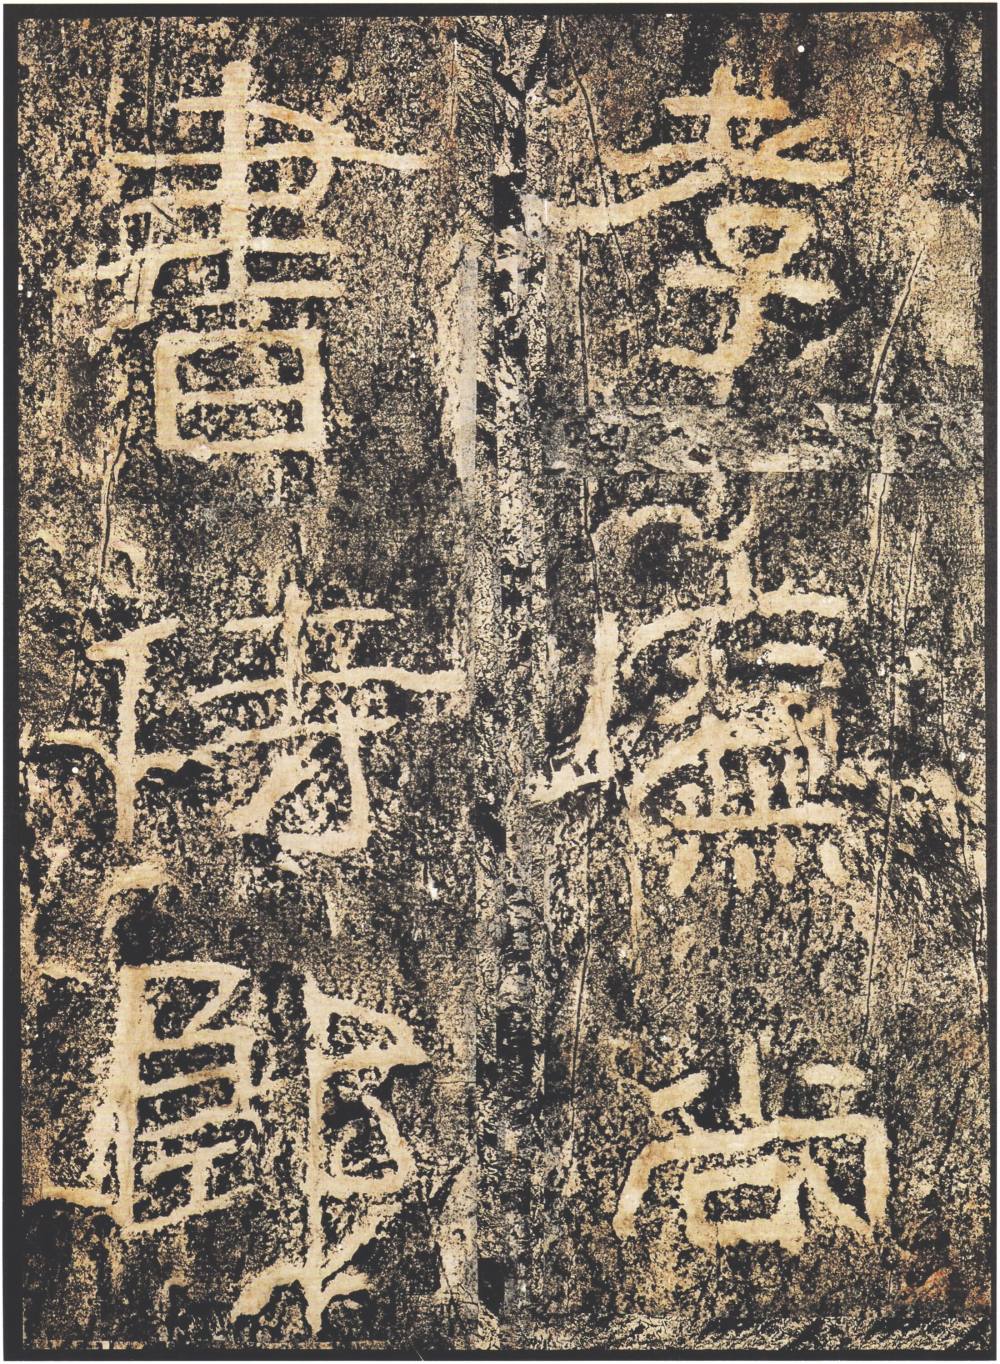 孝廉尚
書侍郎